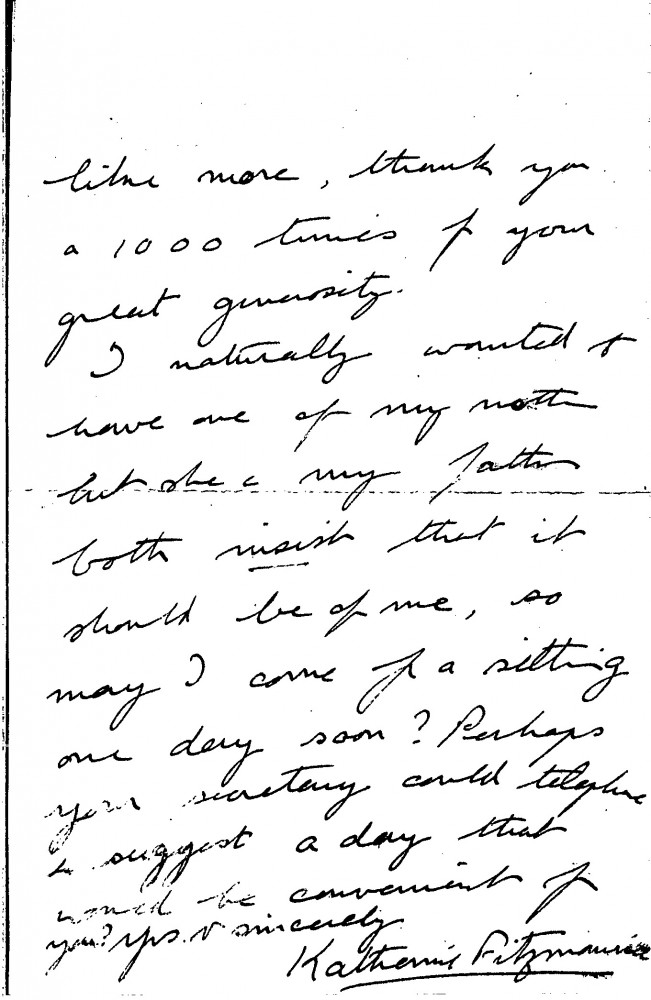 like more, thank you
a 1000 times f your
great generosity.
I naturally wanted to
have one of my mother
but she & my father
both insist that it
should be of me, so
may I come f a sitting
one day soon? Perhaps
your secretary could telephone
& suggest a day that
would be convenient f
you? Yrs. v. sincerely
Katherine Fitzmaurice